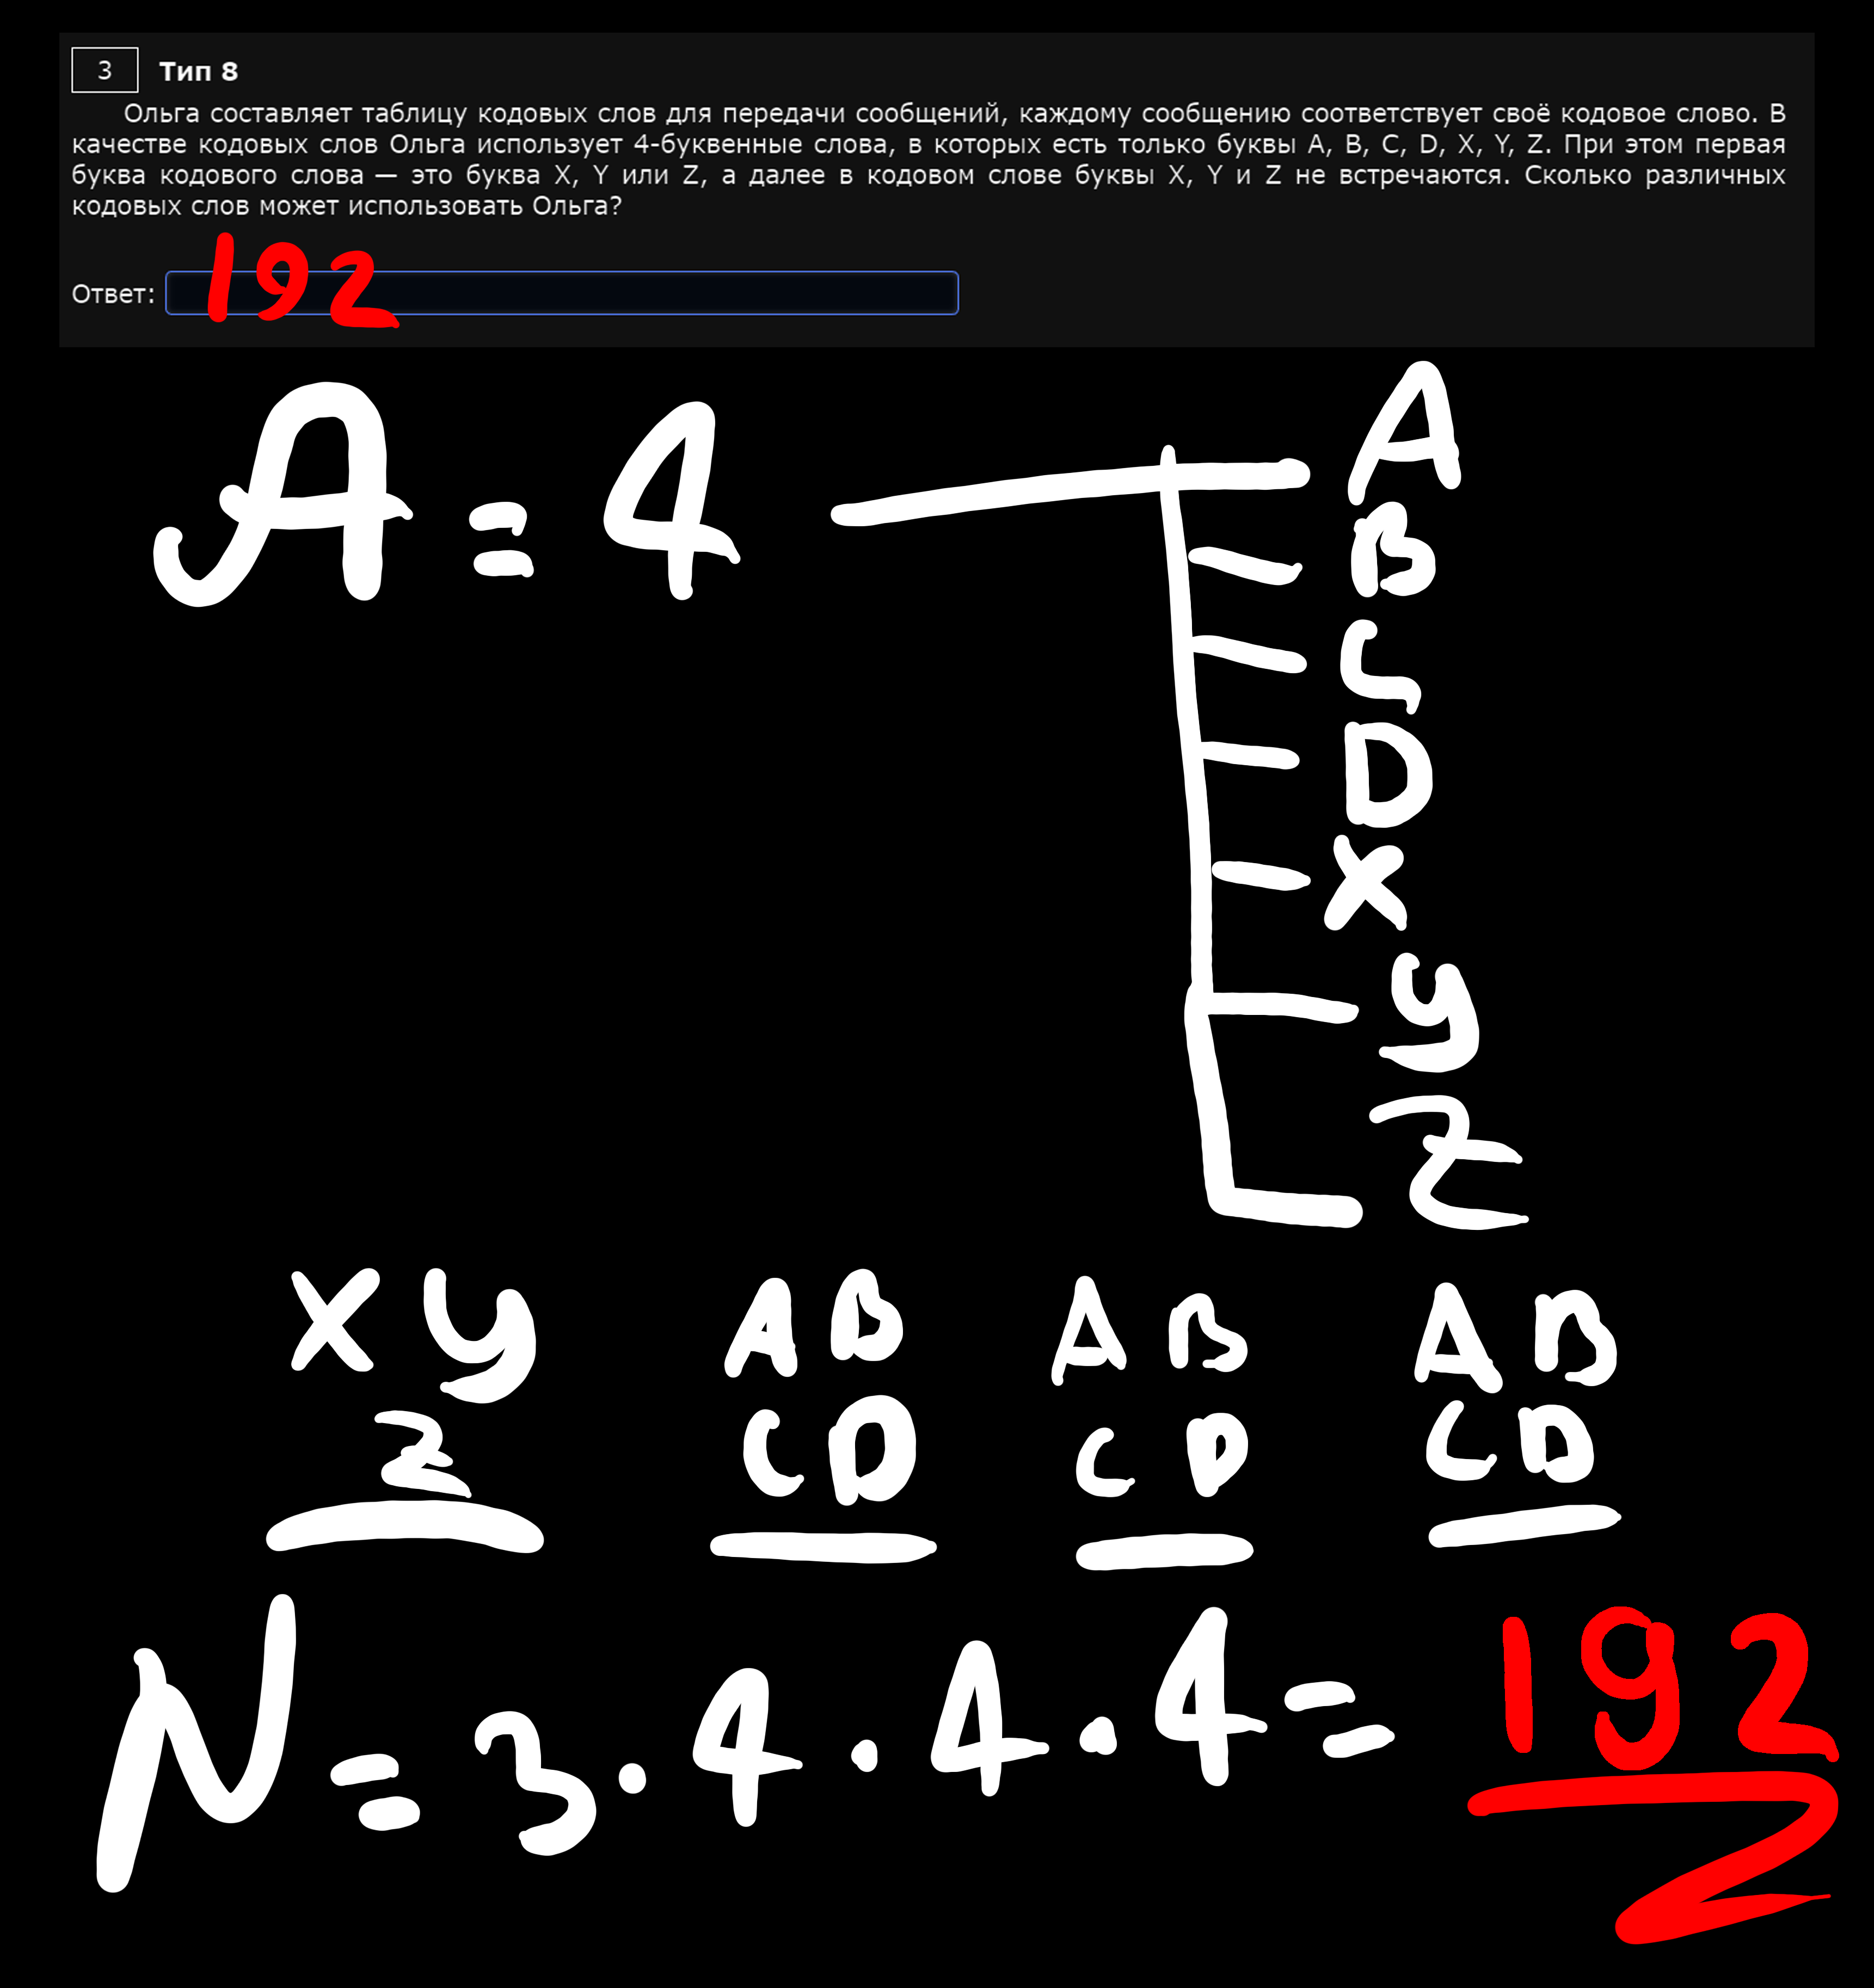 3 Тип 8
Ольга составляет таблицу кодовых слов для передачи сообщений, каждому сообщению соответствует своё кодовое слово. В
качестве кодовых слов Ольга использует 4-буквенные слова, в которых есть только буквы A, B, C, D, X, Y, Z. При этом первая
буква кодового слова — это буква X, Y или Z, а далее в кодовом слове буквы X, Y и Z не встречаются. Сколько различных
кодовых слов может использовать Ольга?
Ответ: 192
A = 4
A
B
C
D
X
Y
Z
X Y AB A B A B
Z C D C D C D
N = 3 · 4 · 4 · 4 = 192